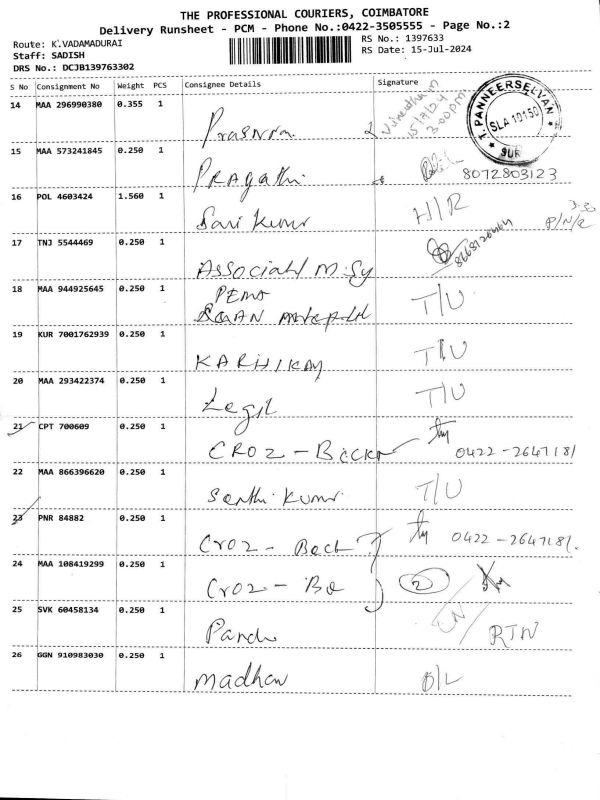 THE PROFESSIONAL COURIERS, COIMBATORE
Delivery Runsheet - PCM - Phone No.:0422-3505555 - Page No.:2
Route: K.VADAMADURAI
Staff: SADISH
DRS No.: DCJB139763302
RS No.: 1397633
RS Date: 15-Jul-2024
S No Consignment No Weight PCS Consignee Details Signature
14 MAA 296990380 0.355 1 Prasnna
15/7/24
3.00pm
T. PANNEERSELVAN
SLA 10150
SUR
15 MAA 573241845 0.250 1 PRAgathi 8072803123
16 POL 4603424 1.560 1 Sari Kumar H/R
P/N/R
17 TNJ 5544469 0.250 1 Associat M.Sy
18 MAA 944925645 0.250 1 T/U
19 KUR 7001762939 0.250 1 KARHIKAY T/U
20 MAA 293422374 0.250 1 Legil T/U
21 CPT 700609 0.250 1 CROZ - 0422-2647181
22 MAA 866396620 0.250 1 Senthi Kumar T/U
23 PNR 84882 0.250 1 CrOZ - Beck 0422-2647181.
24 MAA 108419299 0.250 1 CrOZ - Be 2
25 SVK 60458134 0.250 1 Pandi RTN
26 GGN 910983030 0.250 1 madhav D/L